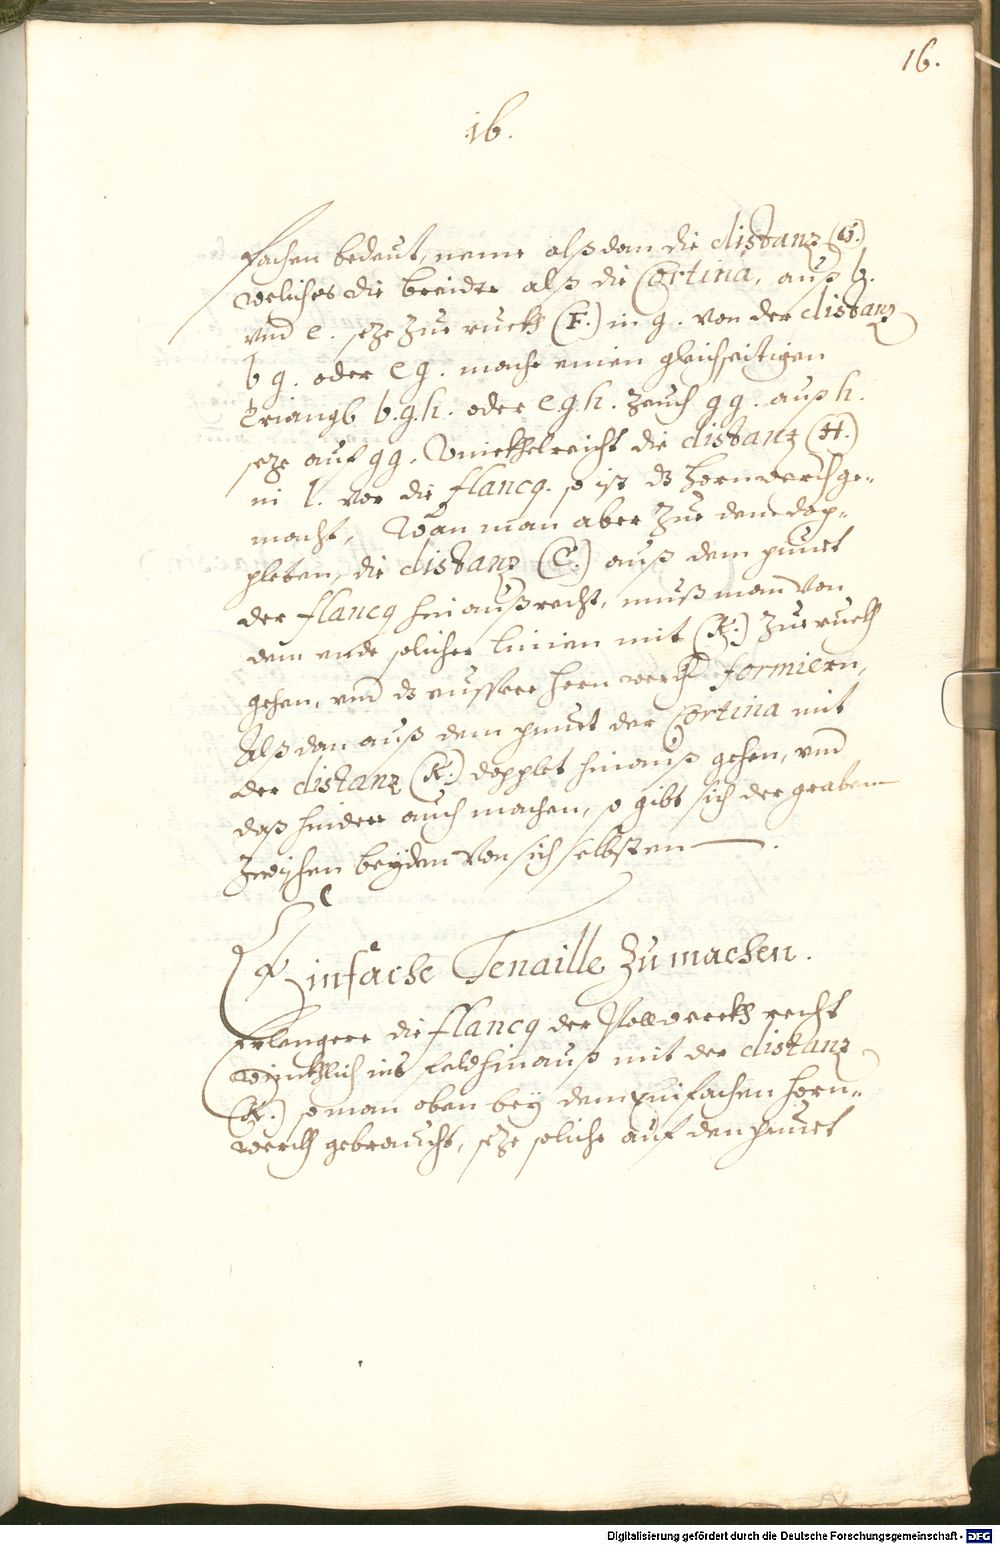 16.
16.
fachen bedeut, neme alß dan die distanz (G.)
weliches die breidte alß die Cortina, auß b.
vnd e. seze zue ruckh (F.) in g. von der distanz
b g. oder e g. mache einen gleichseitigen
triangl b.g.h. oder e.g.h. zeuch g g. auß h.
seze auf g g. Winckhelreicht die distanz (H.)
in l. vor die flancq. so ist dz hornwerch ge-
macht, Wan man aber zue dem dop-
pleten, die distanz (C.) auß dem punct
der flancq hinaußrecht, muß man von
dem ende solicher linien mit (K.) zue ruckh
gehen, vnd dz eussere hornwerch formiern,
Alß dan auß dem punct der Cortina mit
der distanz (K.) dopplet hinauß gehen, vnd
daß hinder auch machen, so gibt sich der graben
zwischen beyden von sich selbsten.
Einfache Tenaille zu machen.
Erlengere die flancq der Pollwerckh recht
wincklich ins feld hinauß mit der distanz
(K.) so man oben bey dem einfachen horn-
werch gebraucht, seze soliche auf den punct
Digitalisierung gefördert durch die Deutsche Forschungsgemeinschaft - DFG